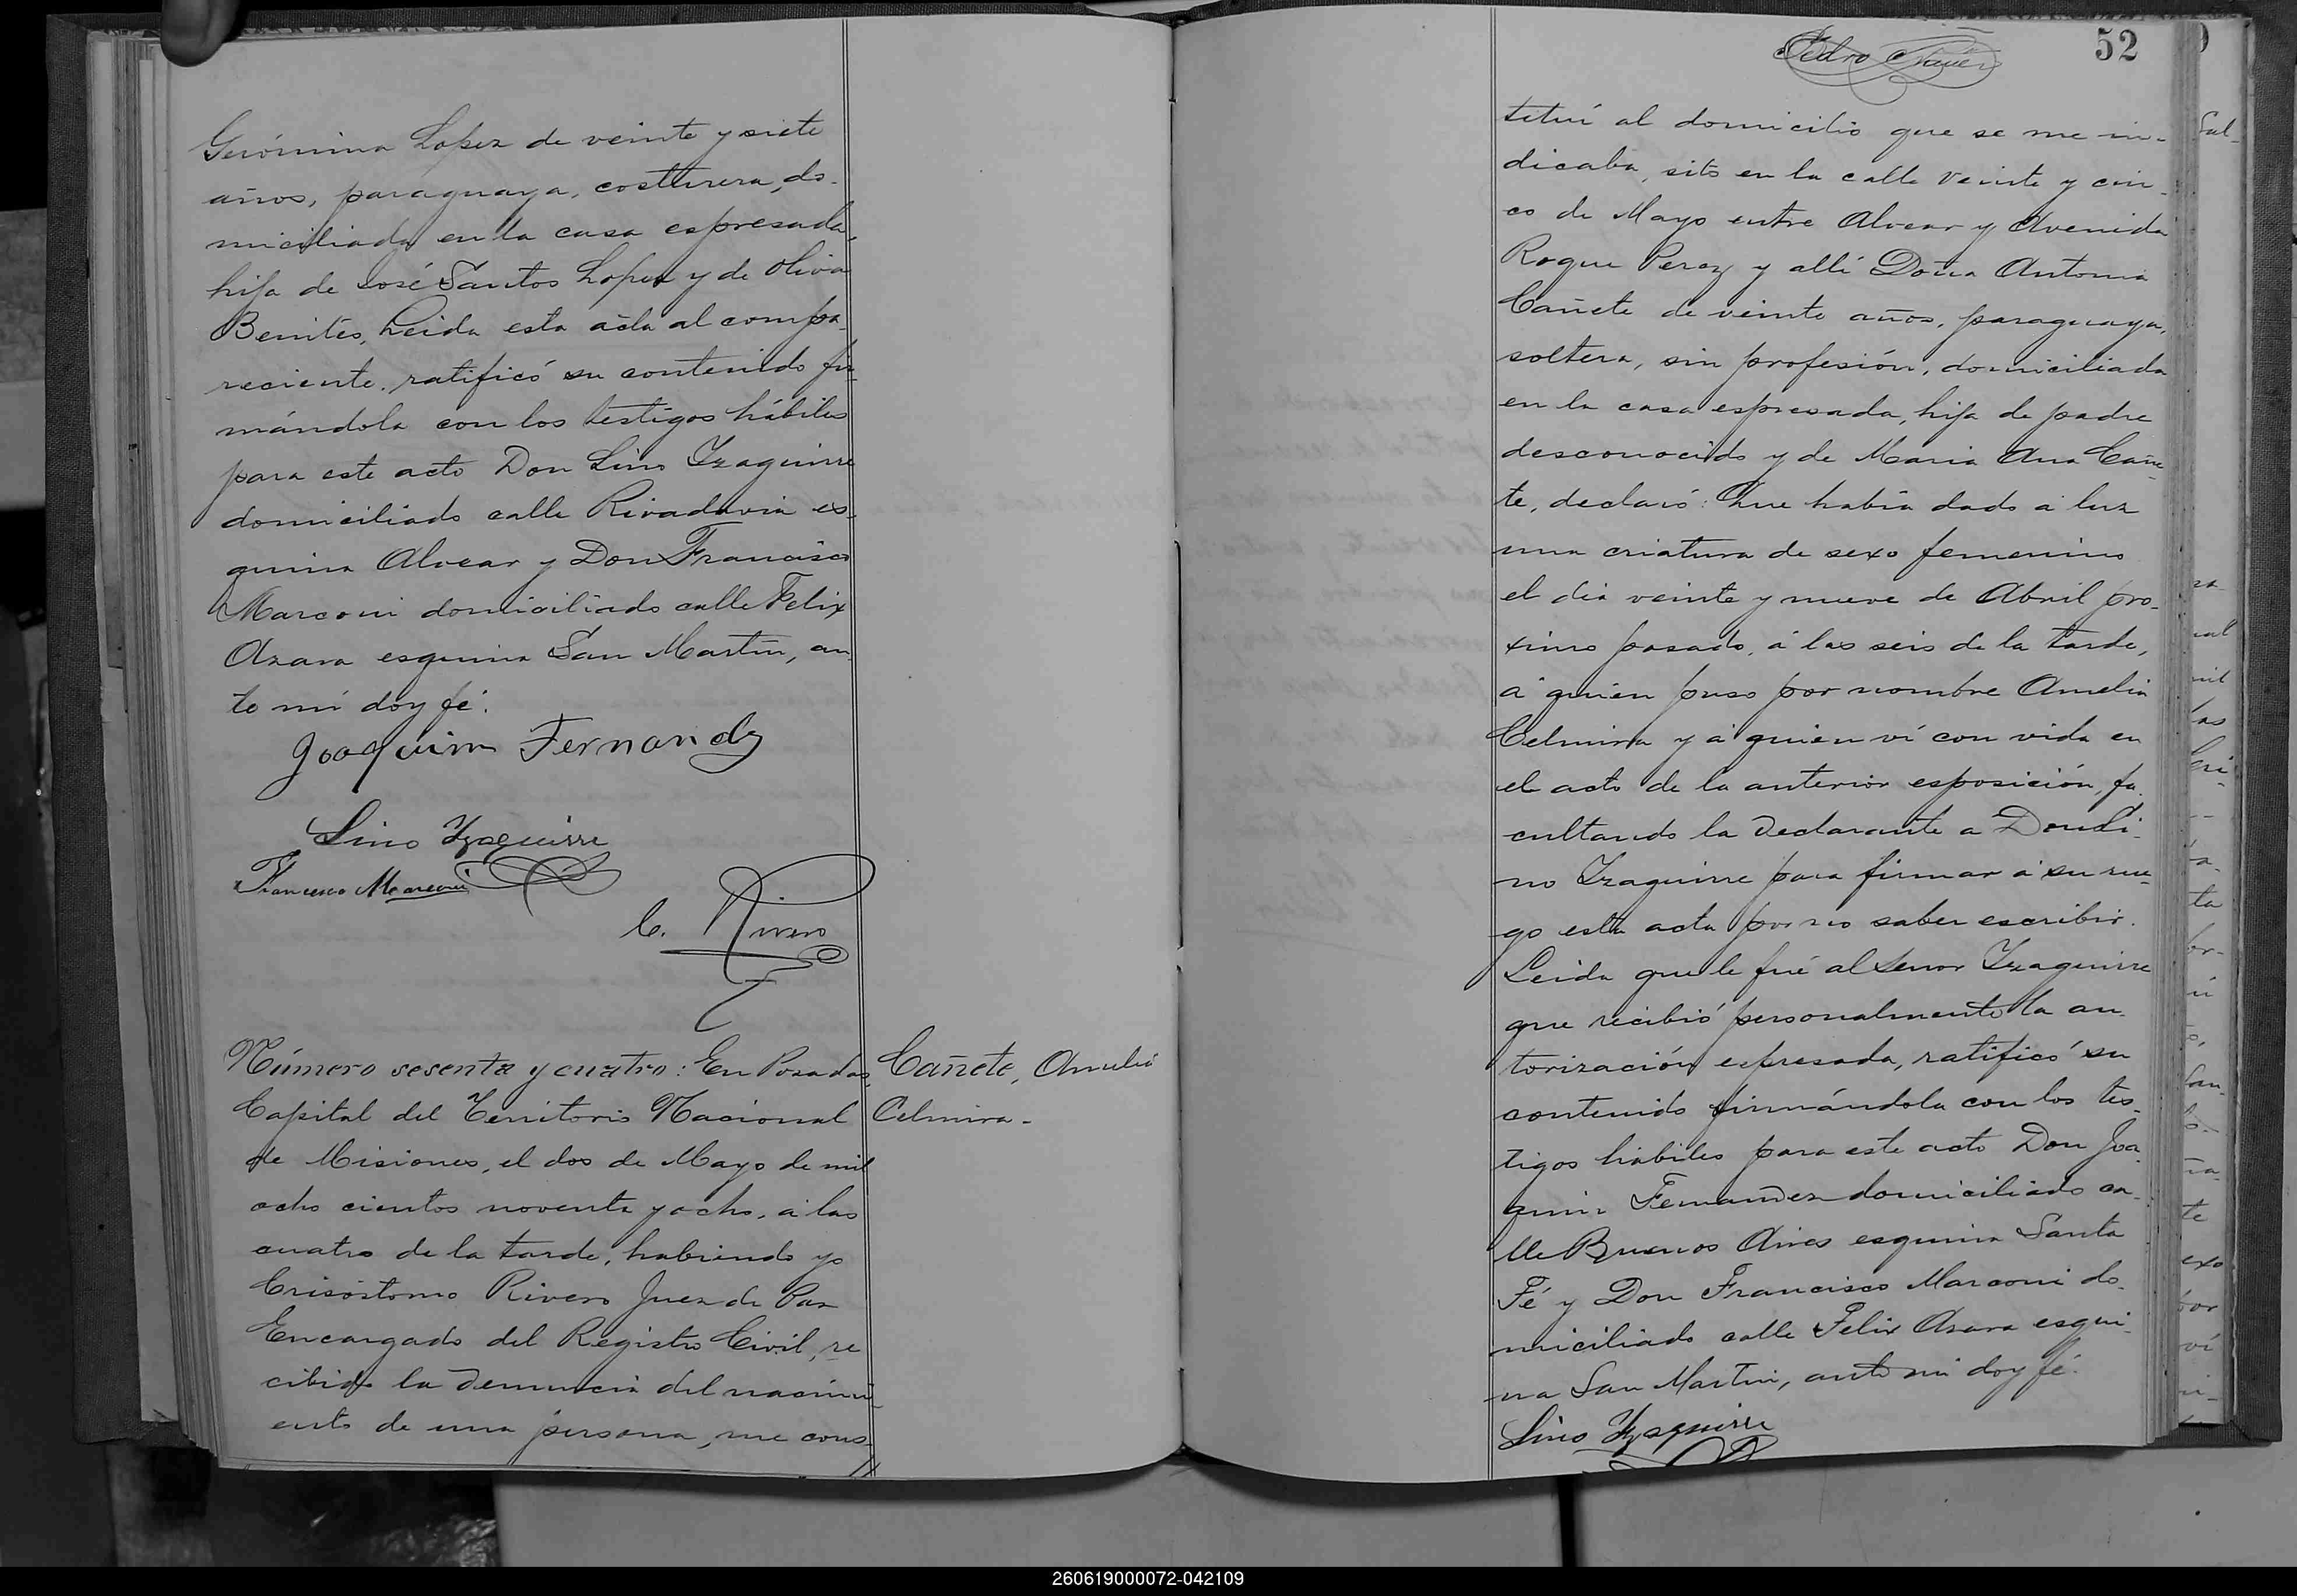 Gerónima Lopez de veinte y siete
años, paraguaya, costurera, do-
miciliada en la casa espresada,
hija de José Santos Lopez y de Oliva
Benites, Leida esta acta al compa-
reciente, ratificó su contenido fir-
mándola con los testigos hábiles
para este acto Don Lino Yzaguirre
domiciliado calle Rivadavia es-
quina Alvear y Don Francisco
Marconi domiciliado calle Felix
Azara esquina San Martin, an
te mí doy fé.
Joaquim Fernandz
Lino Yzaguirre
Francesco Marconi
C. Rivero
Número sesenta y cuatro: En Posadas,
Capital del Territorio Nacional
de Misiones, el dos de Mayo de mil
ocho cientos noventa y ocho, a las
cuatro de la tarde, habiendo yo
Crisóstomo Rivero Juez de Paz
Encargado del Registro Civil, re
cibido la denuncia del nacimi
ento de una persona, me cons-
Cañete, Amelia
Celmira-
Pedro
52
tituí al domicilio que se me in-
dicaba, sito en la calle Veinte y cin-
co de Mayo entre Alvear y Avenida
Roque Perez y allí Doña Antonia
Cañete de veinte años, paraguaya,
soltera, sin profesión, domiciliada
en la casa espresada, hija de padre
desconocido y de Maria Ana Cañe-
te, declaró: Que había dado a luz
una criatura de sexo femenino
el dia veinte y nueve de Abril pro-
ximo pasado, á las seis de la tarde,
a quien puso por nombre Amelia
Celmira y a quien ví con vida en
el acto de la anterior esposición, fa-
cultando la declarante a Don Li-
no Yzaguirre para firmar á su rue-
go esta acta por no saber escribir.
Leida que le fué al Señor Yzaguirre
que recibió personalmente la au-
torización espresada, ratificó su
contenido firmándola con los tes-
tigos hábiles para este acto Don Joa-
quin Fernandez domiciliado ca-
lle Buenos Aires esquina Santa
Fé y Don Francisco Marconi do-
miciliado calle Felix Azara esqui-
na San Martin, ante mi doy fé.
Lino Yzaguirre
260619000072-042109